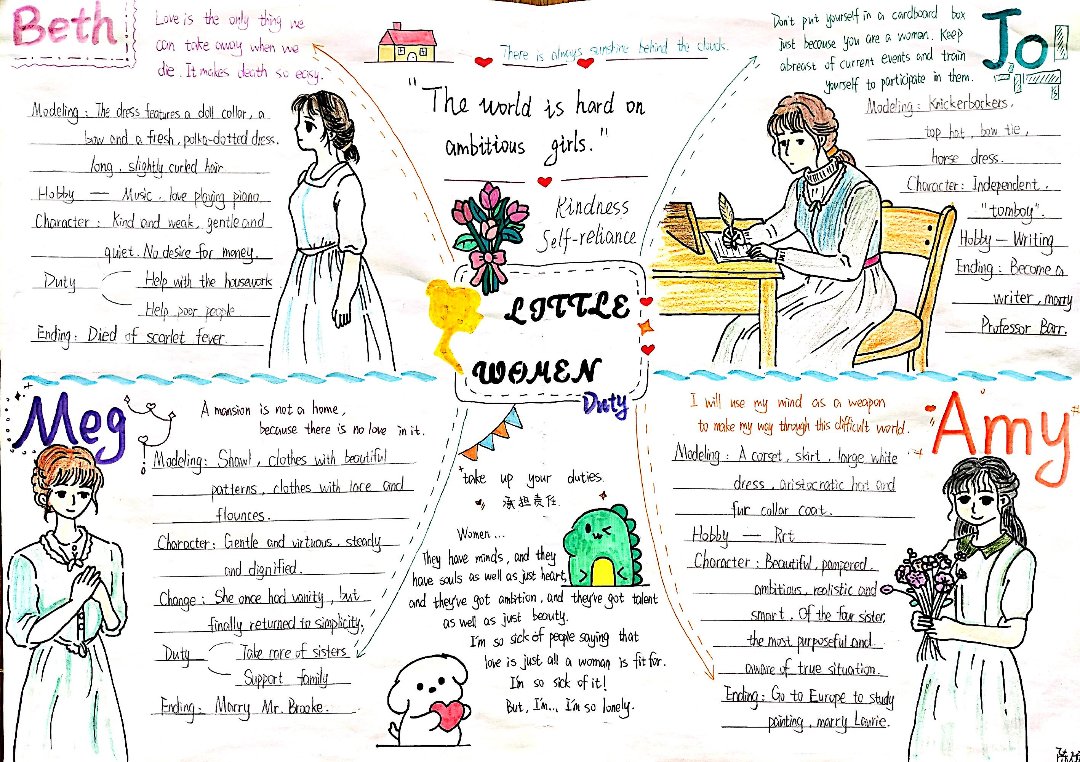 Beth
Love is the only thing we
can take away when we
die. It makes death so easy.
Modeling: The dress features a doll collar, a
bow and a fresh, polka-dotted dress.
long, slightly curled hair
Hobby — Music, love playing piano
Character: Kind and weak, gentle and
quiet. No desire for money.
Duty
Help with the housework
Help poor people
Ending: Died of scarlet fever.
There is always sunshine behind the clouds.
"The world is hard on
ambitious girls."
Kindness
Self-reliance
LITTLE
WOMEN
Duty
Don't put yourself in a cardboard box
just because you are a woman. Keep
abreast of current events and train
yourself to participate in them.
Jo
Modeling: Knickerbockers,
top hat, bow tie,
horse dress.
Character: Independent.
"tomboy".
Hobby — Writing
Ending: Become a
writer, marry
Professor Barr.
Meg
A mansion is not a home,
because there is no love in it.
Modeling: Shawl, clothes with beautiful
patterns, clothes with lace and
flounces.
Character: Gentle and virtuous, steady
and dignified.
Change: She once had vanity, but
finally returned to simplicity.
Duty
Take care of sisters
Support family
Ending: Marry Mr. Brooke.
take up your duties.
承担责任
Women...
They have minds, and they
have souls as well as just heart,
and they've got ambition, and they've got talent
as well as just beauty.
I'm so sick of people saying that
love is just all a woman is fit for.
I'm so sick of it!
But, I'm... I'm so lonely.
I will use my mind as a weapon
to make my way through this difficult world.
Amy
Modeling: A corset, skirt, large white
dress, aristocratic hat and
fur collar coat.
Hobby — Art
Character: Beautiful, pampered.
ambitious, realistic and
smart. Of the four sister,
the most purposeful and
aware of true situation.
Ending: Go to Europe to study
painting, marry Laurie.